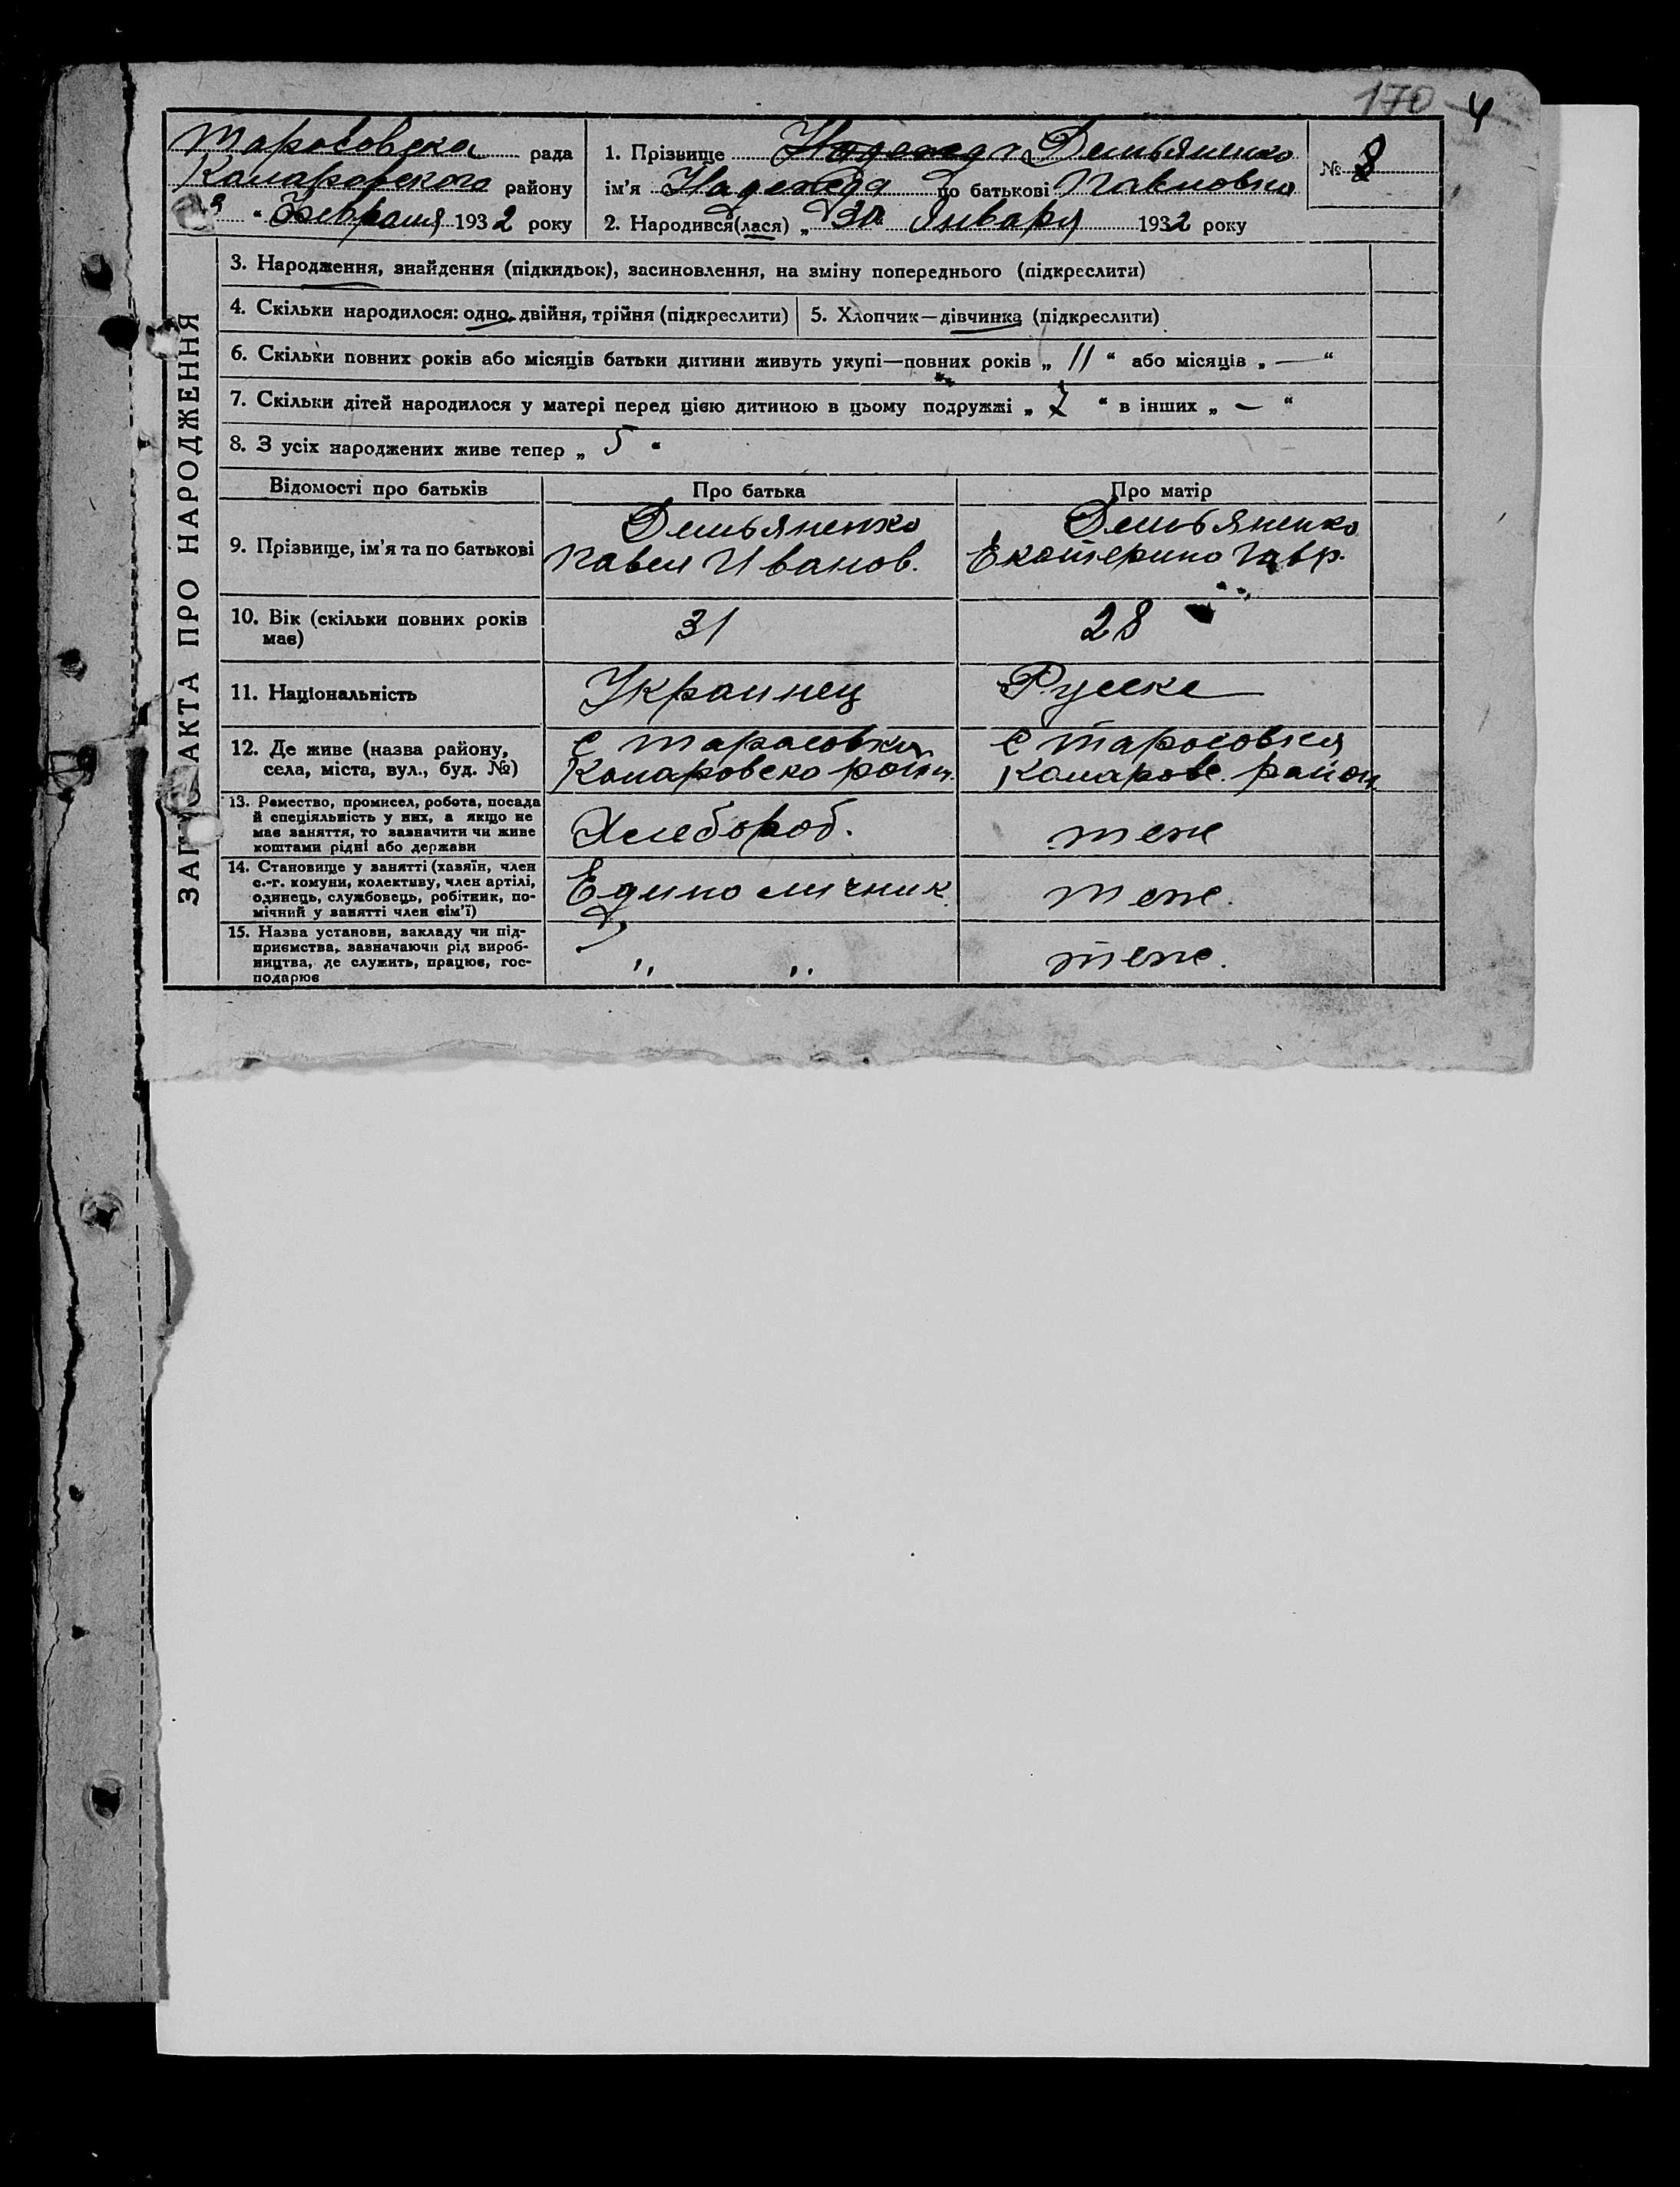 170 4
Таросовска рада
Комаровского району
3 " Февраля 1932 року
1. Прізвище Демьяненко
ім'я Надежда по батькові Павловна
№ 8
2. Народився(лася) „ 30 Января 1932 року
ЗАПИС АКТА ПРО НАРОДЖЕННЯ
3. Народження, знайдення (підкидьок), засиновлення, на зміну попереднього (підкреслити)
4. Скільки народилося: одно, двійня, трійня (підкреслити) 5. Хлопчик—дівчинка (підкреслити)
6. Скільки повних років або місяців батьки дитини живуть укупі—повних років „ 11 “ або місяців „ — “
7. Скільки дітей народилося у матері перед цією дитиною в цьому подружжі „ 7 “ в інших „ — “
8. З усіх народжених живе тепер „ 5 “
Відомості про батьків Про батька Про матір
9. Прізвище, ім'я та по батькові
Демьяненко
Павел Иванов.
Демьяненко
Екатерино Гавр.
10. Вік (скільки повних років
має)
31
28
11. Національність
Украинец
Руске
12. Де живе (назва району,
села, міста, вул., буд. №)
с Тарасовка
Комаровско район.
с Таросовка
Комаровс. район
13. Ремество, промисел, робота, посада
й спеціяльність у них, а якщо не
має заняття, то зазначити чи живе
коштами рідні або держави
Хлебороб.
тоже
14. Становище у занятті (хазяїн, член
с.-г. комуни, колективу, член артілі,
одинець, службовець, робітник, по-
мічний у занятті член сім'ї)
Единоличник
тоже.
15. Назва установи, закладу чи під-
приємства, зазначаючи рід вироб-
ництва, де служить, працює, гос-
подарює
" "
тоже.